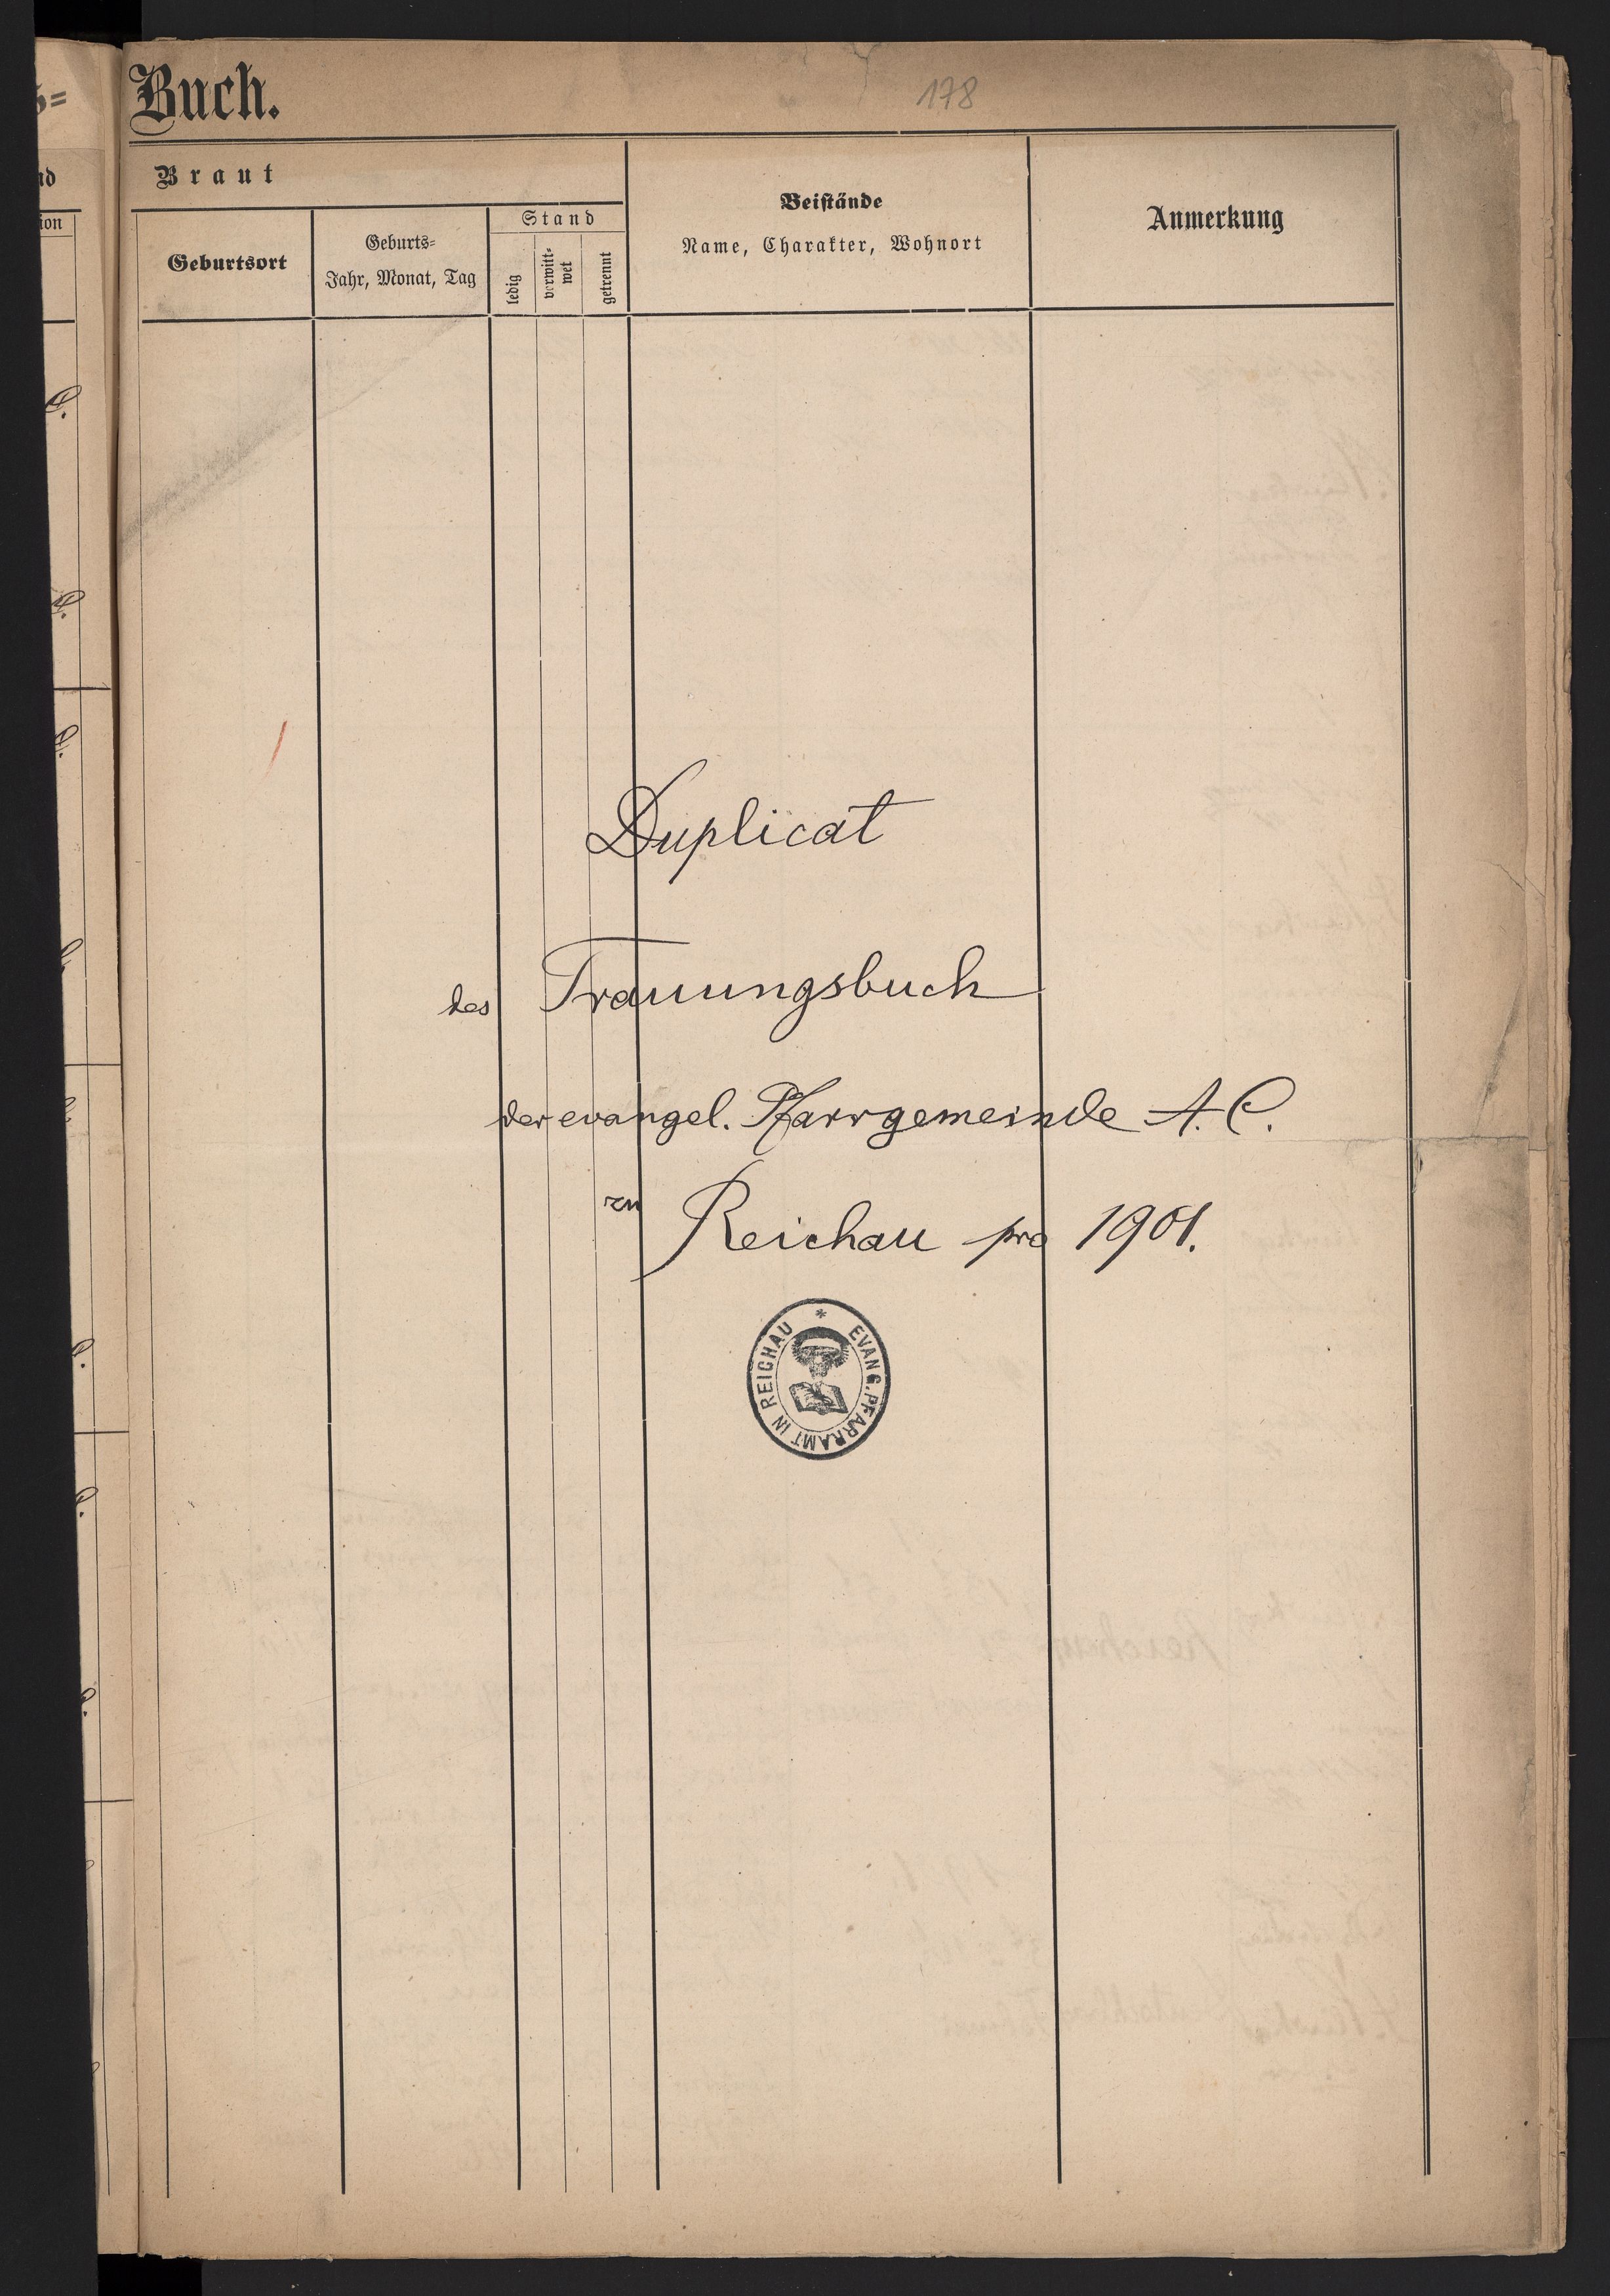 Buch.
178
Braut
Geburtsort
Geburts-
Jahr, Monat, Tag
Stand
ledig
verwitt-
wet
getrennt
Beistände
Name, Charakter, Wohnort
Anmerkung
Duplicat
des Trauungsbuch
der evangel. Pfarrgemeinde A. C.
zu Reichau pro 1901.
* EVANG. PFARRAMT IN REICHAU